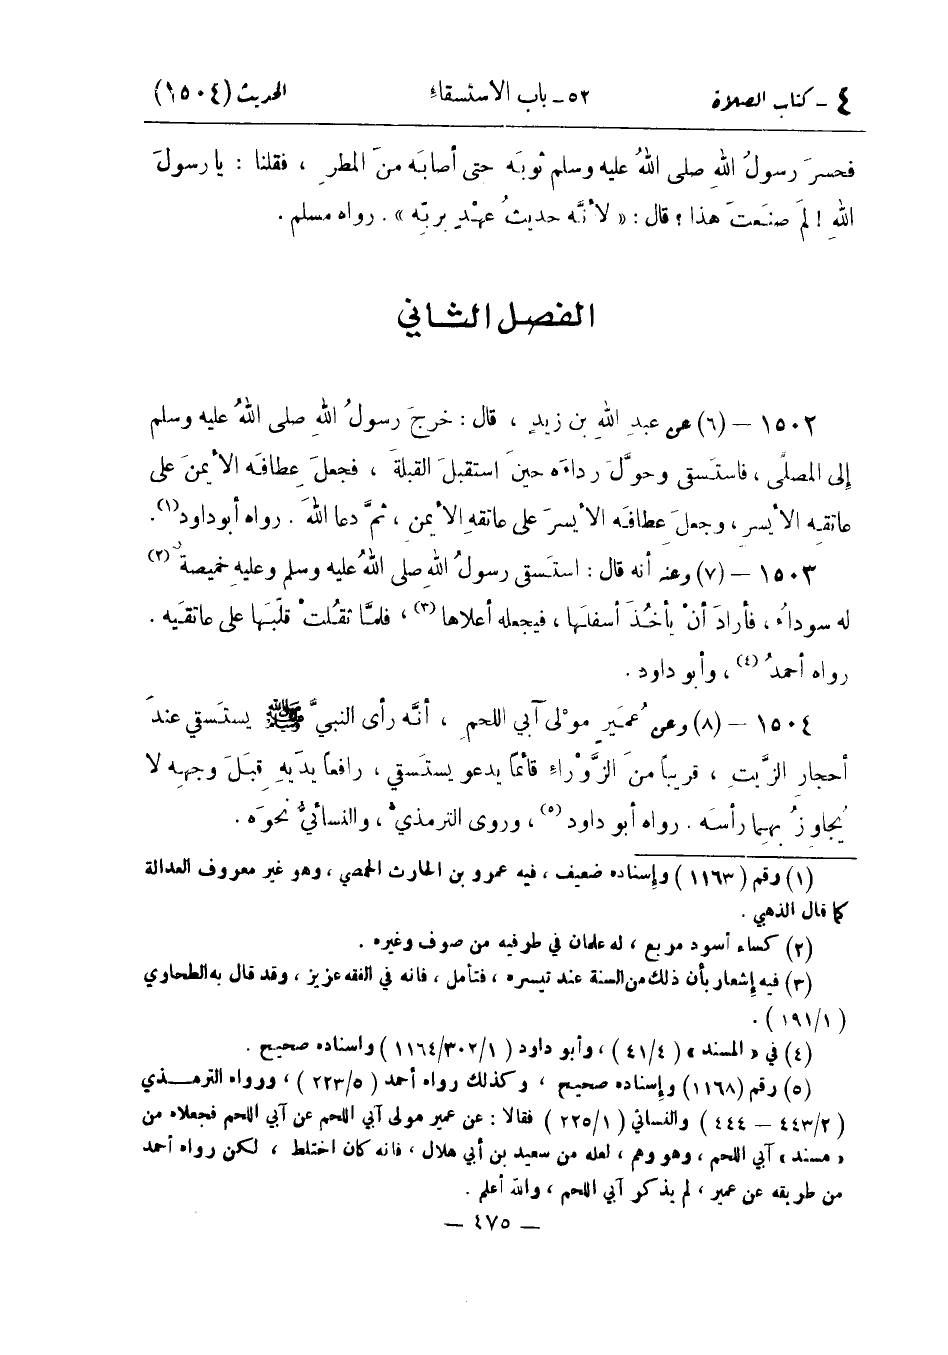 ٤ - كتاب الصلاة ٥٢- باب الاستسقاء الحديث (١٥٠٤)
فحسرَ رسولُ اللهِ صلى اللهُ عليه وسلم ثوبَه حتى أصابَه منَ المطرِ ، فقلنا : يا رسولَ
اللهِ ! لمَ صنَعتَ هذا ؟ قال : « لأنَّه حديثُ عهْدٍ بربِّه » . رواه مسلم .
الفصل الثاني
١٥٠٢ – (٦) عن عبدِ اللهِ بن زيدٍ ، قال : خرجَ رسولُ اللهِ صلى اللهُ عليه وسلم
إلى المصلَّى ، فاستَسقى وحوَّلَ رداءَه حينَ استقبلَ القبلةَ ، فجعلَ عِطافَه الأيمنَ على
عاتقِه الأيسرِ ، وجعلَ عِطافَه الأيسرَ على عاتقهِ الأيمنِ ، ثمَّ دعا اللهَ . رواه أبوداود(١).
١٥٠٣ – (٧) وعنه أنه قال : استَسقى رسولُ اللهِ صلى اللهُ عليه وسلم وعليهِ خميصةٌ(٢)
له سوداءُ ، فأرادَ أنْ يأخُذَ أسفلَها ، فيجعله أعلاها (٣) ، فلمَّا ثقُلتْ قلّبَها على عاتقَيه .
رواه أحمدُ (٤) ، وأبو داود .
١٥٠٤ – (٨) وعن عُمَيرٍ موْلى آبي اللحمِ ، أنَّه رأى النبيَّ ﷺ يستَسقي عندَ
أحجارِ الزَّيتِ ، قريباً منَ الزَّوْراءِ قائماً يدعو يستَسقي ، رافعاً يدَيهِ قِبَلَ وجهِه لا
يُجاوِزُ بهِما رأسَه . رواه أبو داود (٥) ، وروى الترمذيُّ ، والنسائيُّ نحوَه .
(١) رقم ( ١١٦٣ ) وإسناده ضعيف ، فيه عمرو بن الحارث الحمصي ، وهو غير معروف العدالة
كما قال الذهبي .
(٢) كساء أسود مربع ، له علمان في طرفيه من صوف وغيره .
(٣) فيه إشعار بأن ذلك من السنة عند تيسره ، فتأمل ، فانه في الفقه عزيز ، وقد قال به الطحاوي
( ١٩١/١ ) .
(٤) في « المسند » ( ٤١/٤ ) ، وأبو داود ( ١١٦٤/٣٠٢/١ ) واسناده صحيح .
(٥) رقم (١١٦٨) وإسناده صحيح ، وكذلك رواه أحمد ( ٢٢٣/٥ ) ، ورواه الترمــذي
( ٤٤٣/٢ – ٤٤٤ ) والنسائي ( ٢٢٥/١ ) فقالا : عن عمير مولى آبي اللحم عن آبي اللحم فجعلاه من
« مسند » آبي اللحم ، وهو وهم ، لعله من سعيد بن أبي هلال ، فانه كان اختلط ، لكن رواه أحمد
من طريقه عن عمير ، لم يذكر آبي اللحم ، والله أعلم .
– ٤٧٥ –